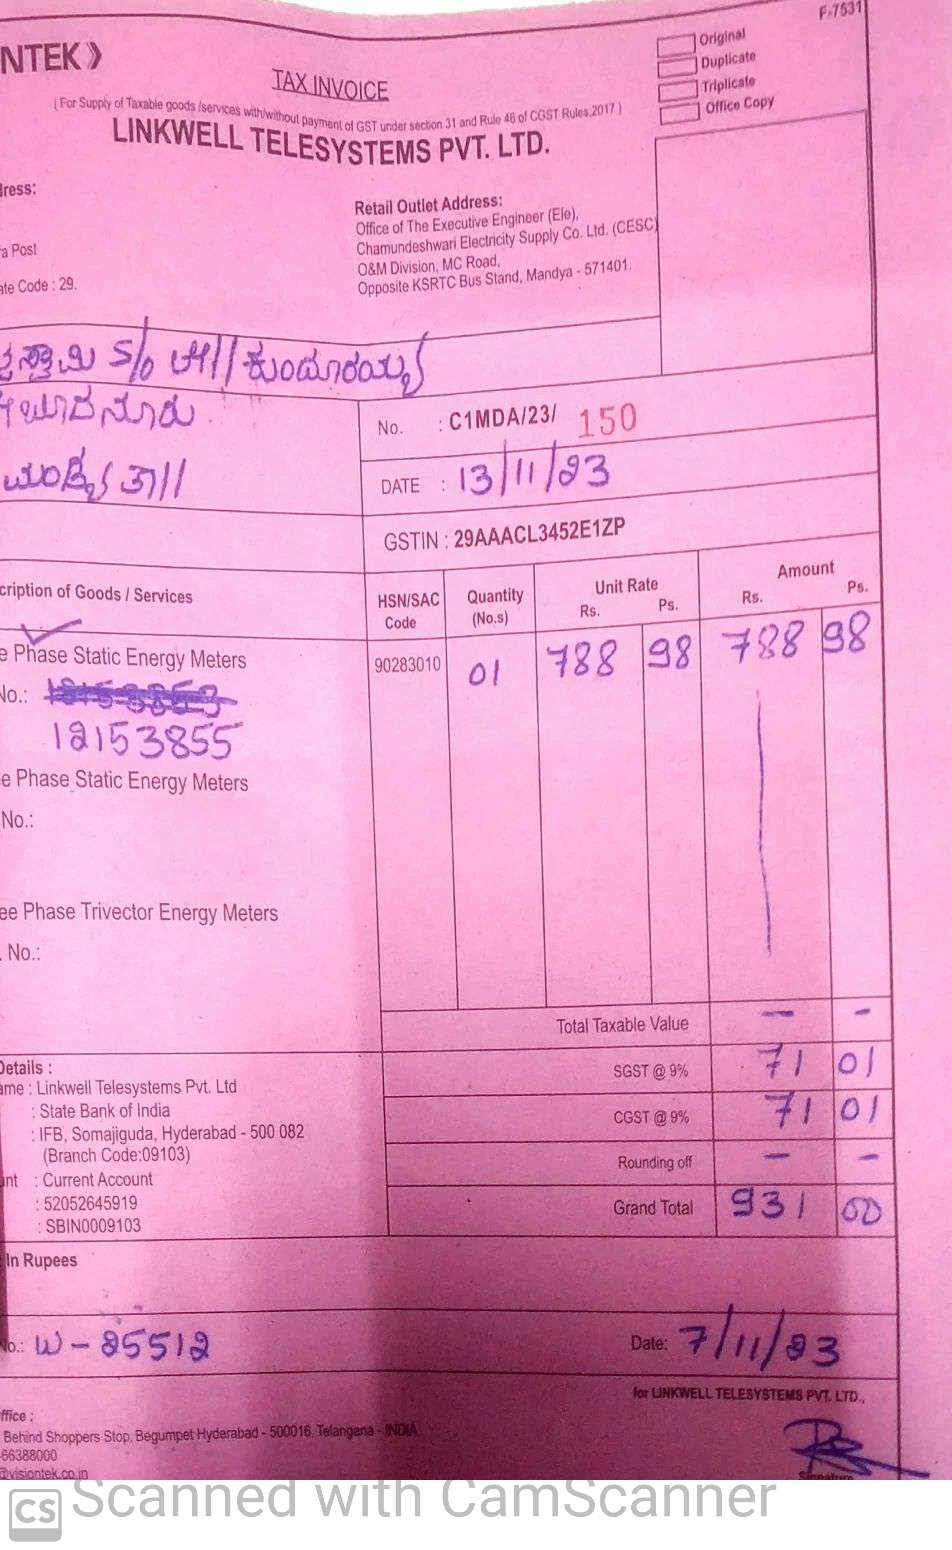 F-7531
NTEK》
Original
Duplicate
Triplicate
Office Copy
TAX INVOICE
( For Supply of Taxable goods /services with/without payment of GST under section 31 and Rule 46 of CGST Rules,2017 )
LINKWELL TELESYSTEMS PVT. LTD.
dress:
a Post
ate Code : 29.
Retail Outlet Address:
Office of The Executive Engineer (Ele),
Chamundeshwari Electricity Supply Co. Ltd. (CESC)
O&M Division, MC Road,
Opposite KSRTC Bus Stand, Mandya - 571401.
S/o
ಮಂಡ್ಯ ತಾ//
No. : C1MDA/23/ 150
DATE : 13/11/23
GSTIN : 29AAACL3452E1ZP
cription of Goods / Services HSN/SAC Code Quantity (No,s) Unit Rate Rs. Ps. Amount Rs. Ps.
e Phase Static Energy Meters 90283010 01 788 98 788 98
No.:
12153855
e Phase Static Energy Meters
No.:
ee Phase Trivector Energy Meters
. No.:
Total Taxable Value — -
SGST @ 9% 71 01
CGST @ 9% 71 01
Rounding off — -
Grand Total 931 00
Details :
ame : Linkwell Telesystems Pvt. Ltd
: State Bank of India
: IFB, Somajiguda, Hyderabad - 500 082
(Branch Code:09103)
unt : Current Account
: 52052645919
: SBIN0009103
In Rupees
No.: W-25512 Date: 7/11/23
for LINKWELL TELESYSTEMS PVT. LTD.,
ffice :
Behind Shoppers Stop, Begumpet Hyderabad - 500016, Telangana - INDIA
66388000
@visiontek.co.in
Signature
CS Scanned with CamScanner